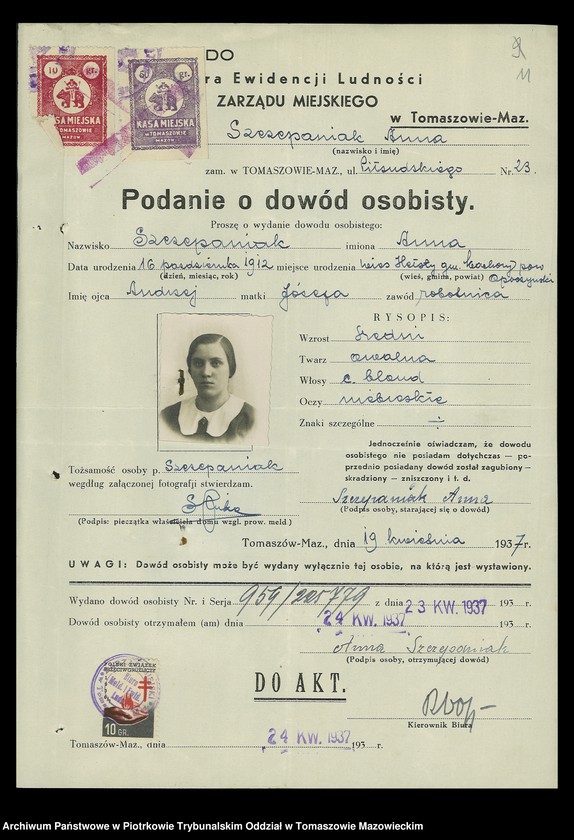 DO
ra Ewidencji Ludności
ZARZĄDU MIEJSKIEGO
w Tomaszowie-Maz.
91
11
10 gr.
KASA MIEJSKA
W TOMASZOWIE
MAZOW.
50 gr.
KASA MIEJSKA
W TOMASZOWIE
MAZOW.
Szczepaniak Anna
(nazwisko i imię)
zam. w TOMASZOWIE-MAZ., ul. Piłsudskiego Nr. 23.
Podanie o dowód osobisty.
Proszę o wydanie dowodu osobistego:
Nazwisko Szczepaniak imiona Anna
Data urodzenia 16 października 1912 miejsce urodzenia wieś gm. pow
(dzień, miesiąc, rok) (wieś, gmina, powiat) Opoczyński
Imię ojca Andrzej matki Józefa zawód robotnica
RYSOPIS:
Wzrost średni
Twarz owalna
Włosy c. blond
Oczy niebieskie
Znaki szczególne ÷
Jednocześnie oświadczam, że dowodu
osobistego nie posiadam dotychczas — po-
przednio posiadany dowód został zagubiony —
skradziony — zniszczony i t. d.
Tożsamość osoby p. Szczepaniak
według załączonej fotografji stwierdzam.
(Podpis: pieczątka właściciela domu wzgl. prow. meld)
Szczypaniak Anna
(Podpis osoby, starającej się o dowód)
Tomaszów-Maz., dnia 19 kwietnia 1937 r.
UWAGI: Dowód osobisty może być wydany wyłącznie tej osobie, na którą jest wystawiony.
Wydano dowód osobisty Nr. i Serja 959/225779 z dnia 23 KW. 1937 193 r.
Dowód osobisty otrzymałem (am) dnia 24 KW. 1937 193 r.
Anna Szczypaniak
(Podpis osoby, otrzymującej dowód)
DO AKT.
POLSKI ZWIĄZEK
PRZECIWGRUŹLICZY
10 GR.
Kierownik Biura
Tomaszów-Maz., dnia 24 KW. 1937 193 r.
Archiwum Państwowe w Piotrkowie Trybunalskim Oddział w Tomaszowie Mazowieckim